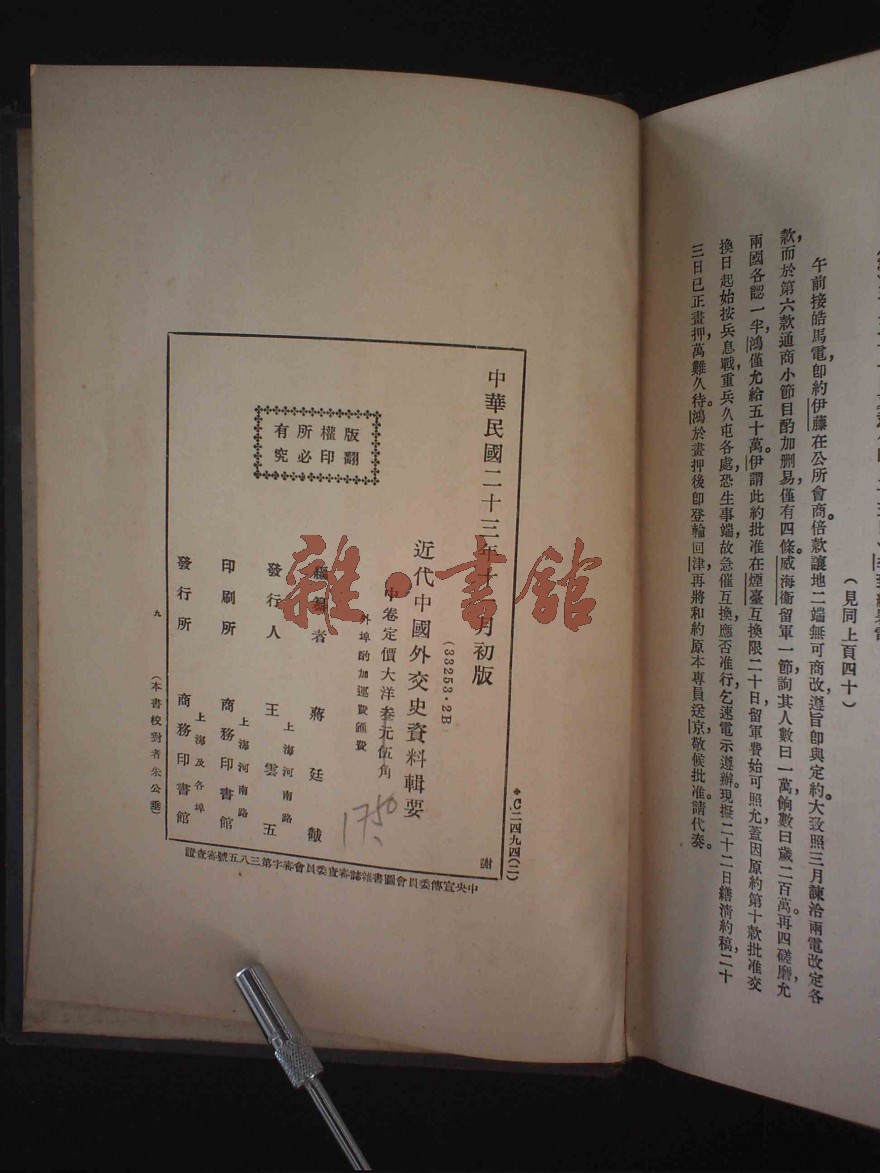 (見同上頁四十)
午前接皓馬電，卽約伊藤在公所會商。倍款讓地二端無可商改，遵旨卽與定約。大致照三月諫洽兩電改定各
款，而於第六款通商小節目酌加删易，僅有四條。威海衞留軍一節，詢其人數曰一萬，餉數曰歲二百萬。再四磋磨，允
兩國各認一半，鴻僅允給五十萬。伊謂此約批准在煙臺互換，限二十日，留軍費始可照允。蓋因原約第十款批准交
換日起始按兵息戰，重兵久屯各處，恐生事端，故急催互換。應否准行，乞速電示遵辦。現擬二十二日繕淸約稿，二十
三日已正畫押，萬難久待。鴻於畫押後卽登輪回津，再將和約原本專員送京，敬候批准。請代奏。
*C二四九四(二)
謝
中華民國二十三年十月初版
(33253·2B)
近代中國外交史資料輯要
中卷定價大洋叁元伍角
外埠酌加運費匯費
1750
版權所有
翻印必究
編纂者 蔣廷黻
上海河南路
發行人 王雲五
上海河南路
印刷所 商務印書館
上海及各埠
發行所 商務印書館
九 (本書校對者朱公垂)
中央宣傳委員會圖書雜誌審查委員會審字第三八五號審查證
雜·書館